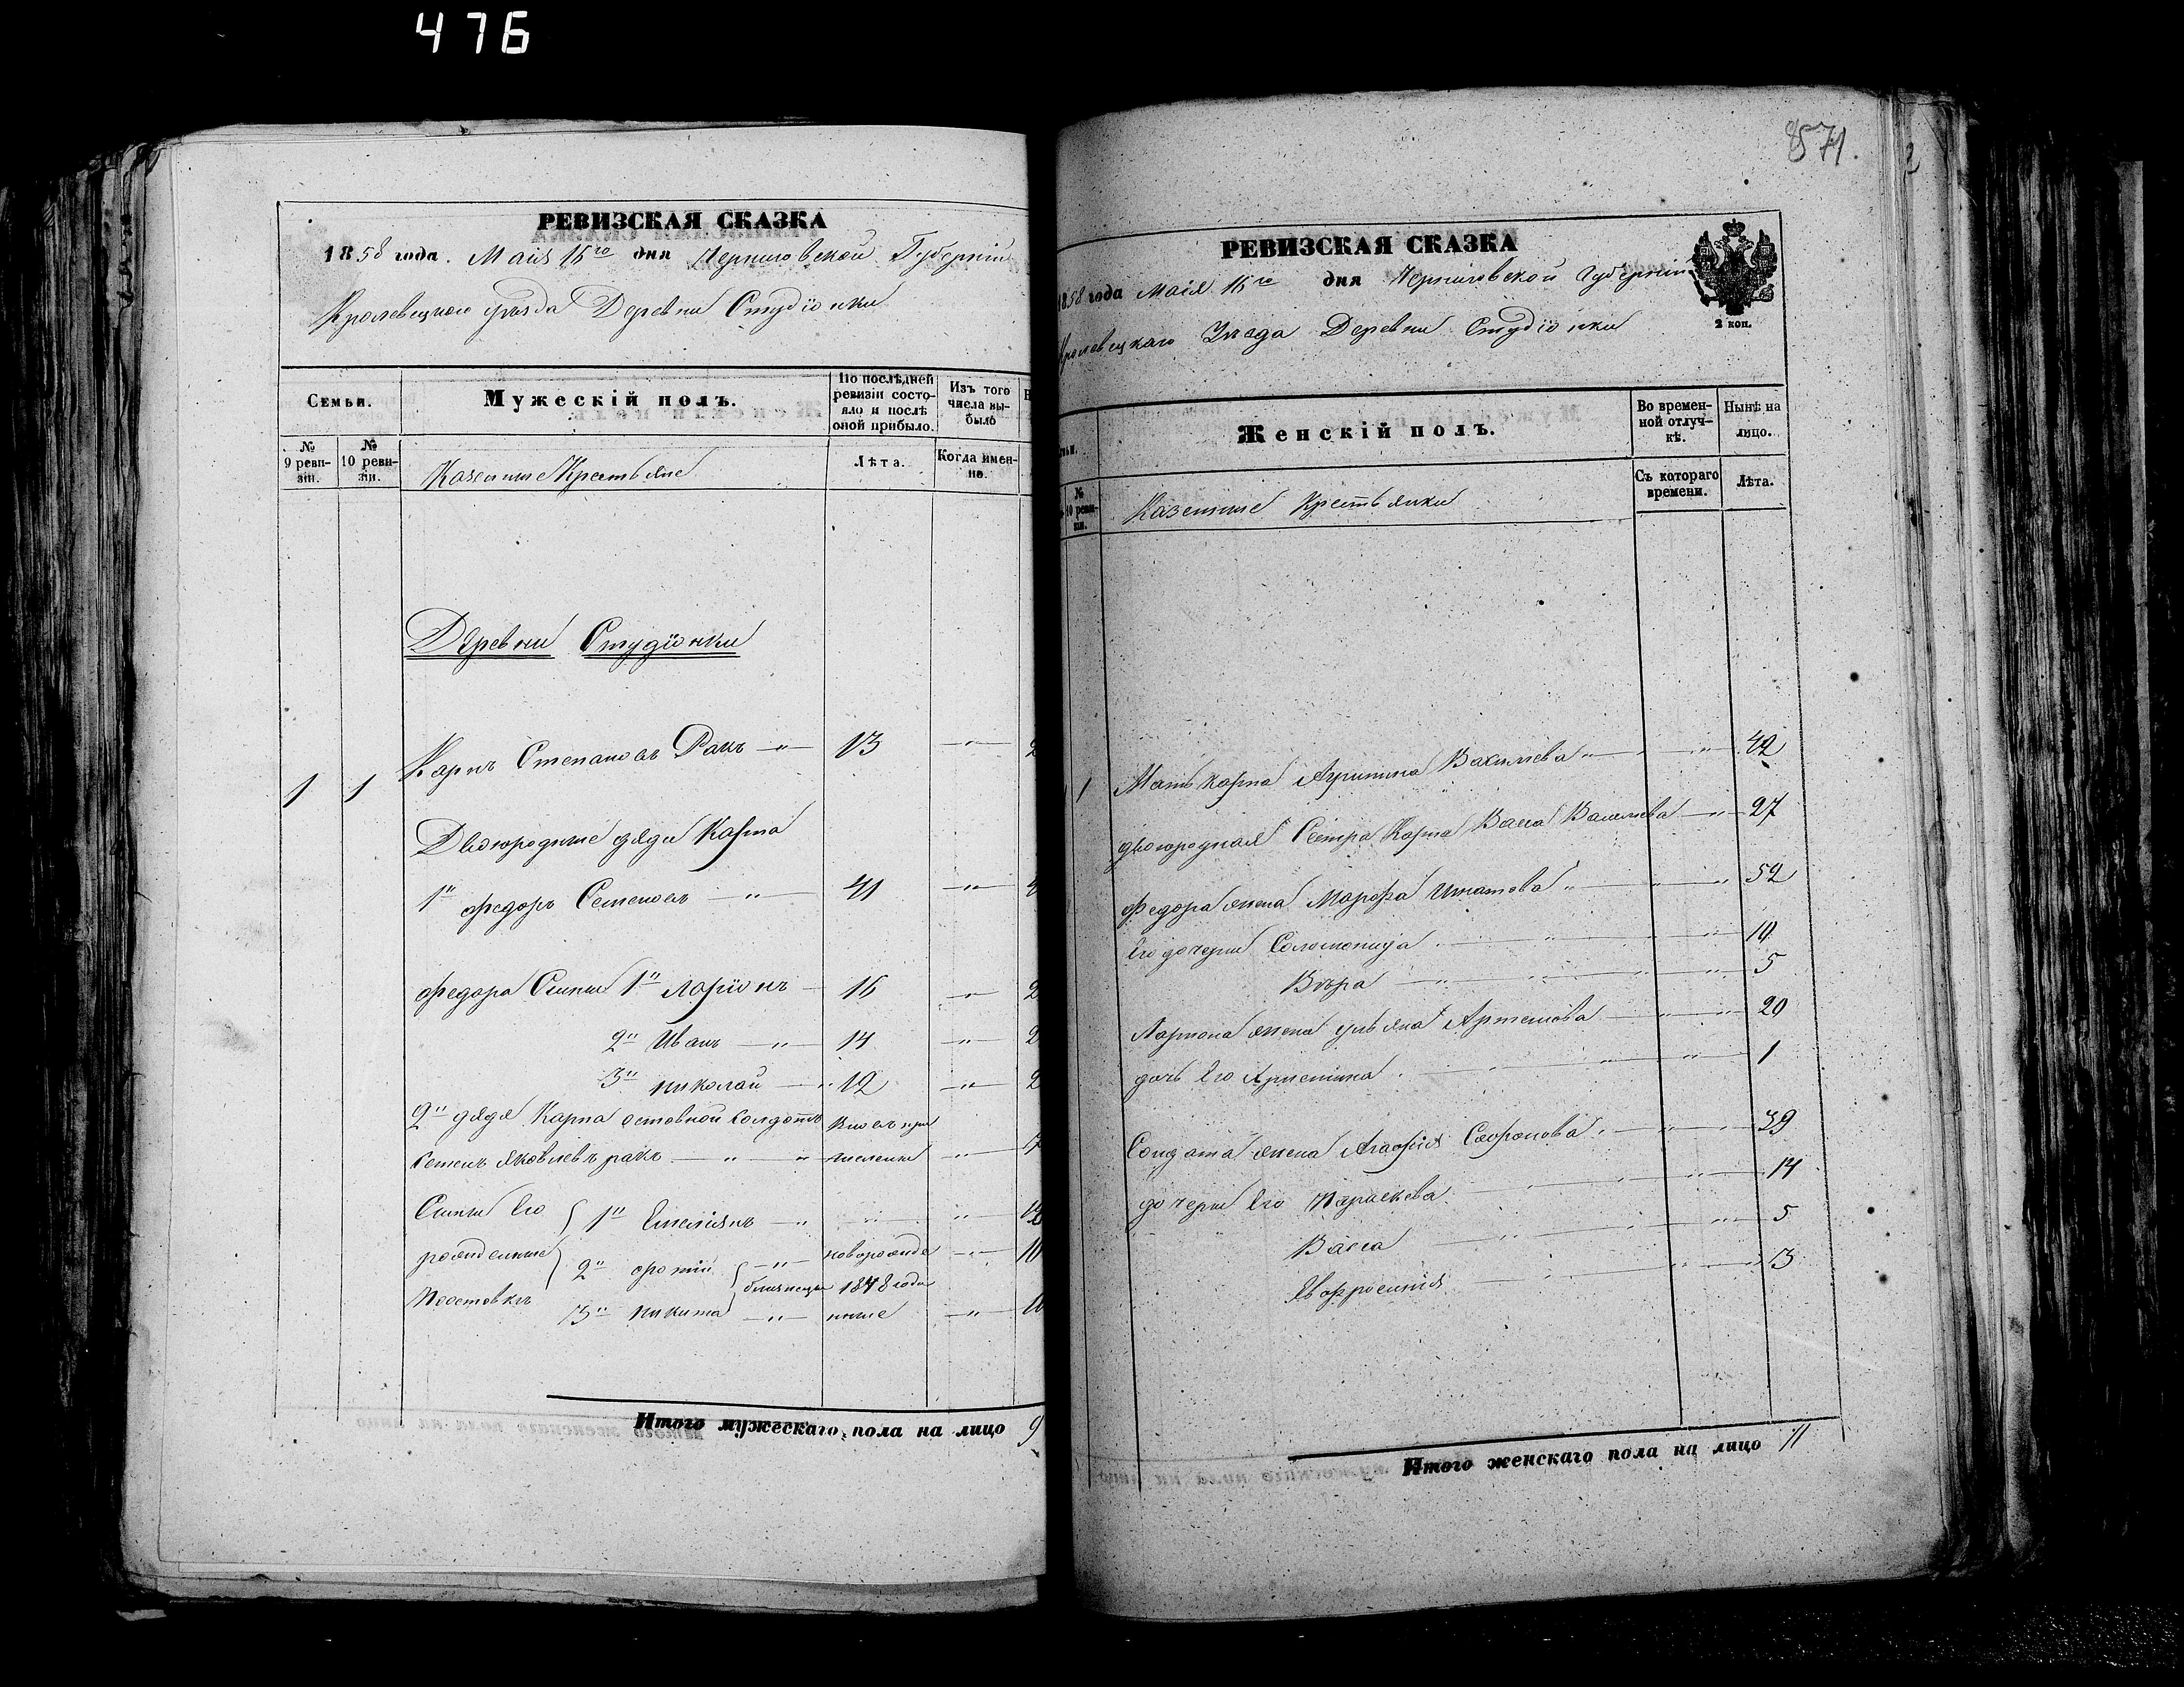 476
РЕВИЗСКАЯ СКАЗКА
1858 года. Маія 15го дня Черниговской Губерніи
Кролевецкого уѣзда Деревни Студіонки
Семьи.
Мужескій полъ.
По послѣдней ревизіи состояло и послѣ оной прибыло.
Изъ того числа выбыло
№ 9 ревизіи.
№ 10 ревизіи.
Казенные Крестьяне
Лѣта.
Когда именно.
Деревни Студіонки
1 1 Карпъ Степановъ Ракъ 13
Двоюродные дяди Карпа
1й Федоръ Семеновъ 41
Федора Сыны 1й Ларіонъ 16
2й Иванъ 14
3й Николай 12
2й дядя Карпа отставной солдатъ
Семенъ Яковлевъ Ракъ
Сыны Его 1й Емеліянъ
рожденные 2й новорожде
близнецы 1848 года
3й Никита нные
Итого мужескаго пола на лицо 9
871.
РЕВИЗСКАЯ СКАЗКА
1858 года Маія 15го дня Черниговской Губерніи
2 коп.
Кролевецкаго Уѣзда Деревни Студіонки
Женскій полъ.
Во временной отлучкѣ.
Нынѣ на лицо.
№ 10 ревизіи.
Казенные Крестьянки
Съ котораго времени.
Лѣта.
1 Мать Карпа 42
двоюродная Сестра Карпа Васса Васильева 27
Федора жена Марфа Игнатова 52
Его дочери Соломонида 10
Вѣра 5
Лариона жена Ульяна Артемова 20
дочь Его 1
Солдата жена Агафія Софронова 39
дочери Его Параскева 14
Васса 5
Евфросинія 3
Итого женскаго пола на лицо 11